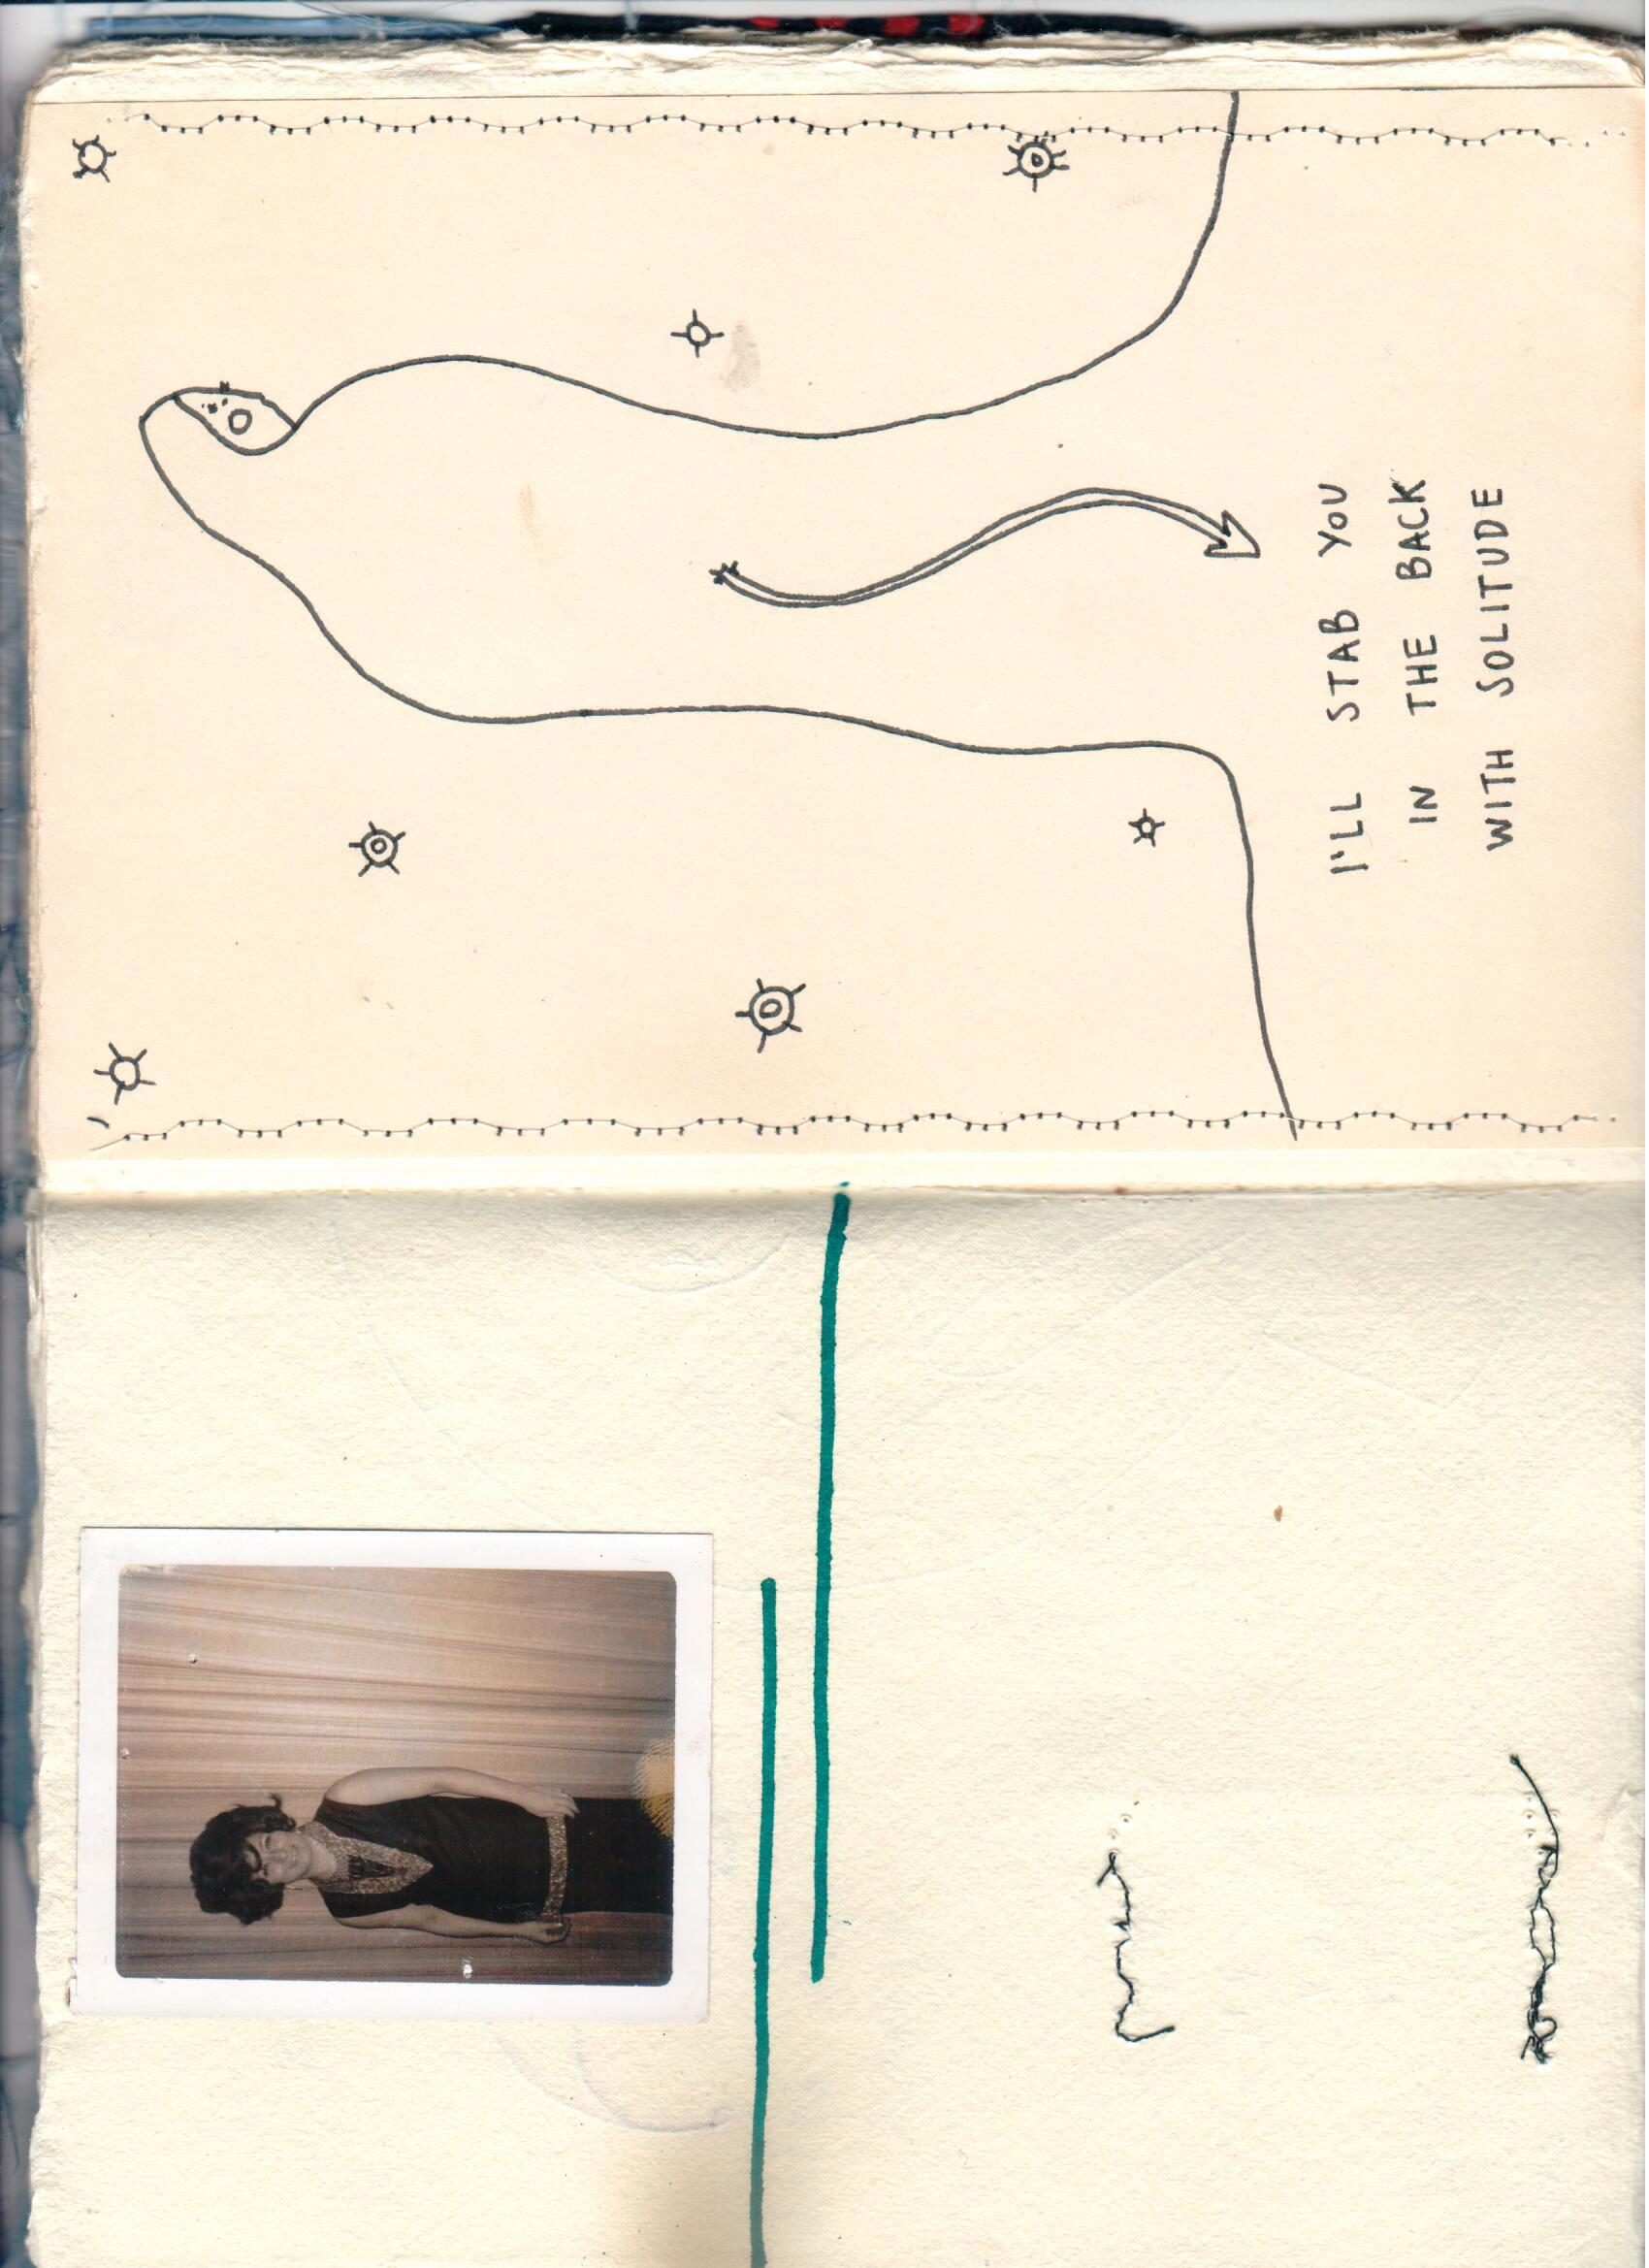 I'LL STAB YOU
IN THE BACK
WITH SOLITUDE